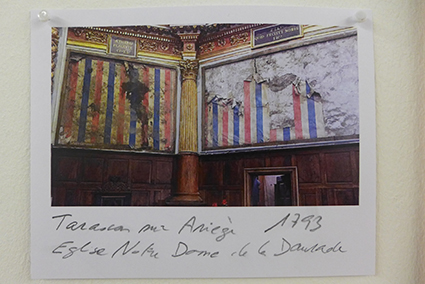 Tarascon sur Ariège 1793
Eglise Notre Dame de la Daurade